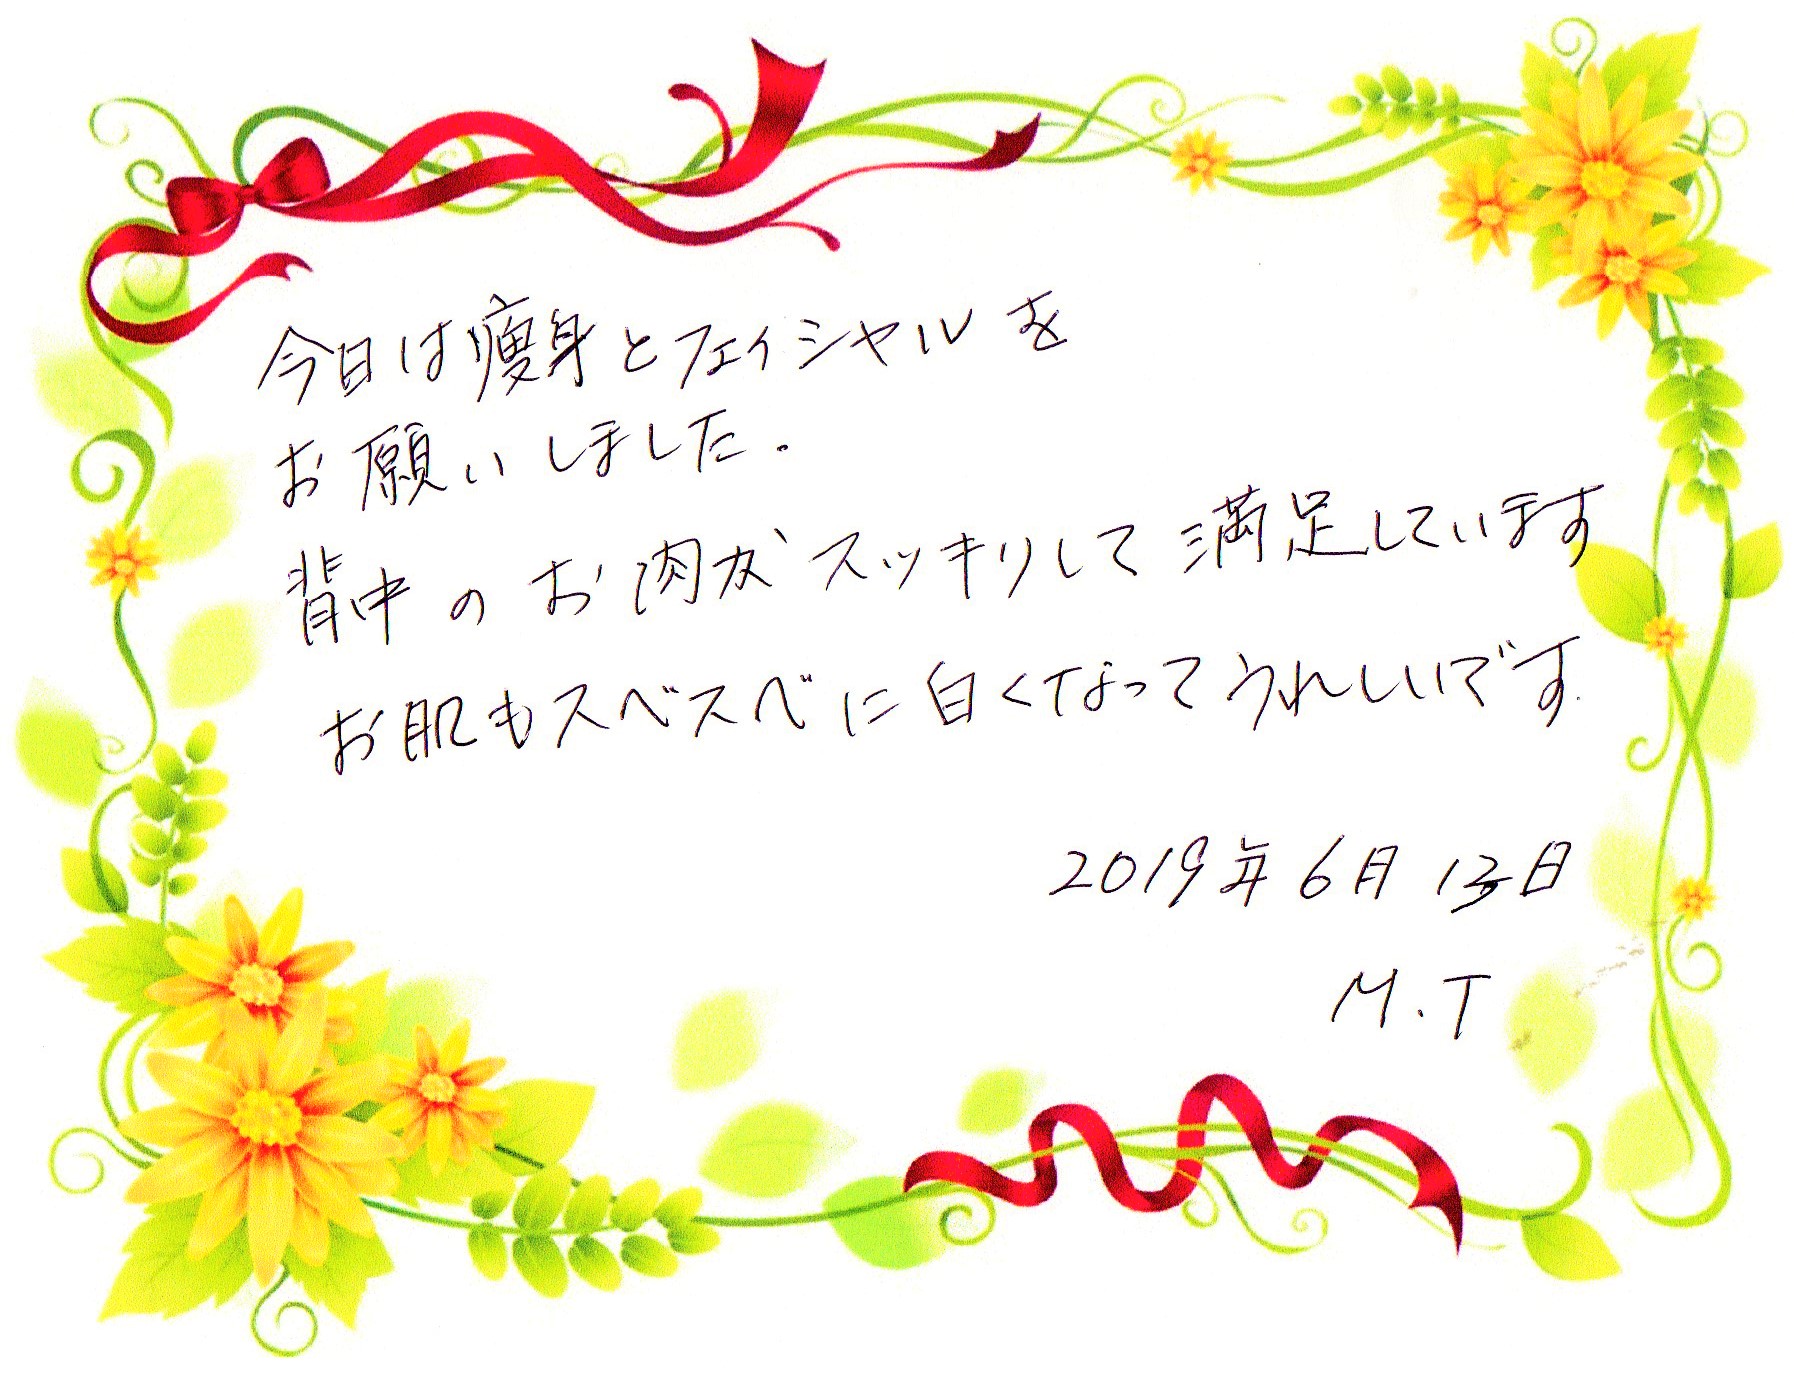 今日は痩身とフェイシャルを
お願いしました.
背中のお肉がスッキリして満足しています
お肌もスベスベに白くなってうれしいです.
2019年6月13日
M.T